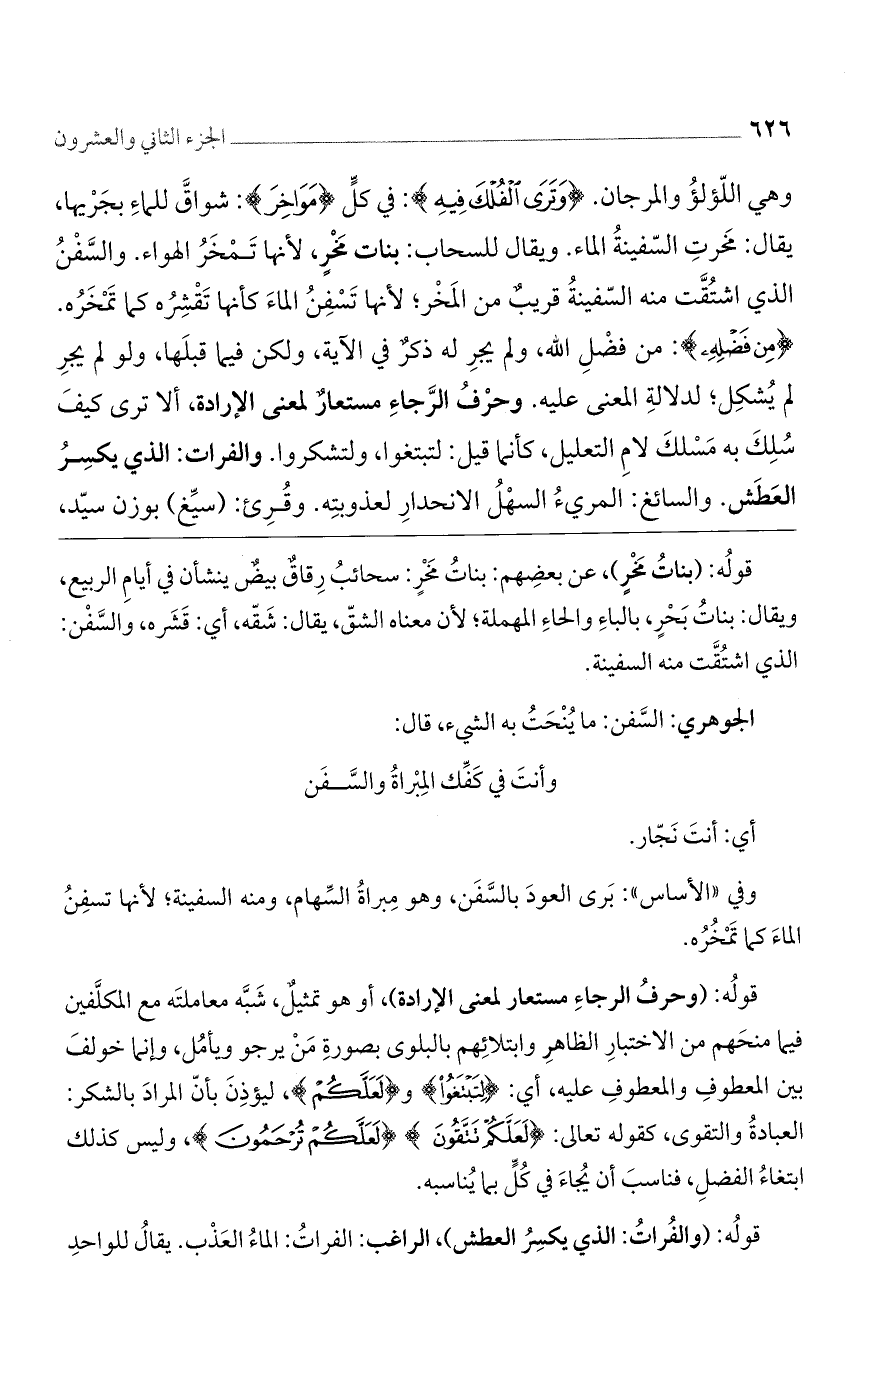 ٦٢٦ الجزء الثاني والعشرون
وهي اللّؤلؤُ والمرجان. ﴿وَتَرَى ٱلْفُلْكَ فِيهِ﴾: في كلٍّ ﴿مَوَاخِرَ﴾: شواقَّ للماءِ بجَرْيِها،
يقال: مخَرتِ السّفينةُ الماء. ويقال للسحاب: بنات مَخْرٍ، لأنها تَـمْخَرُ الهواء. والسَّفْنُ
الذي اشتُقَّت منه السّفينةُ قريبٌ من المَخْر؛ لأنها تَسْفِنُ الماءَ كأنها تَقْشِرُه كما تَمْخَرُه.
﴿مِن فَضْلِهِۦ﴾: من فضْلِ الله، ولم يجرِ له ذكرٌ في الآية، ولكن فيما قبلَها، ولو لم يجرِ
لم يُشكِل؛ لدلالةِ المعنى عليه. وحرْفُ الرَّجاءِ مستعارٌ لمعنى الإرادة، ألا ترى كيفَ
سُلِكَ به مَسْلكَ لامِ التعليل، كأنما قيل: لتبتغوا، ولتشكروا. والفرات: الذي يكسِـرُ
العَطَش. والسائغ: المريءُ السهْلُ الانحدارِ لعذوبتِه. وقُـرِئ: (سيِّغ) بوزن سيّد،
قولُه: (بناتُ مَخْرٍ)، عن بعضِهم: بناتُ مَخْرٍ: سحائبُ رِقاقٌ بيضٌ ينشأن في أيامِ الربيع،
ويقال: بناتُ بَحْرٍ، بالباءِ والحاءِ المهملة؛ لأن معناه الشقّ، يقال: شَقّه، أي: قَشَره، والسَّفْن:
الذي اشتُقَّت منه السفينة.
الجوهري: السَّفن: ما يُنْحَتُ به الشيء، قال:
وأنتَ في كَفِّك المِبْراةُ والسَّـــفَن
أي: أنتَ نَجّار.
وفي «الأساس»: بَرى العودَ بالسَّفَن، وهو مِبراةُ السِّهام، ومنه السفينة؛ لأنها تسفِنُ
الماءَ كما تَمْخُرُه.
قولُه: (وحرفُ الرجاءِ مستعار لمعنى الإرادة)، أو هو تمثيلٌ، شَبَّه معاملتَه مع المكلَّفين
فيما منحَهم من الاختبارِ الظاهرِ وابتلائِهم بالبلوى بصورةِ مَنْ يرجو ويأمُل، وإنما خولفَ
بين المعطوفِ والمعطوفِ عليه، أي: ﴿لِتَبْتَغُوا۟﴾ و﴿لَعَلَّكُمْ﴾، ليؤذِنَ بأنّ المرادَ بالشكر:
العبادةُ والتقوى، كقوله تعالى: ﴿لَعَلَّكُمْ تَتَّقُونَ﴾ ﴿لَعَلَّكُمْ تُرْحَمُونَ﴾، وليس كذلك
ابتغاءُ الفضلِ، فناسبَ أن يُجاءَ في كُلٍّ بما يُناسبه.
قولُه: (والفُراتُ: الذي يكسِرُ العطش)، الراغب: الفراتُ: الماءُ العَذْب. يقالُ للواحدِ